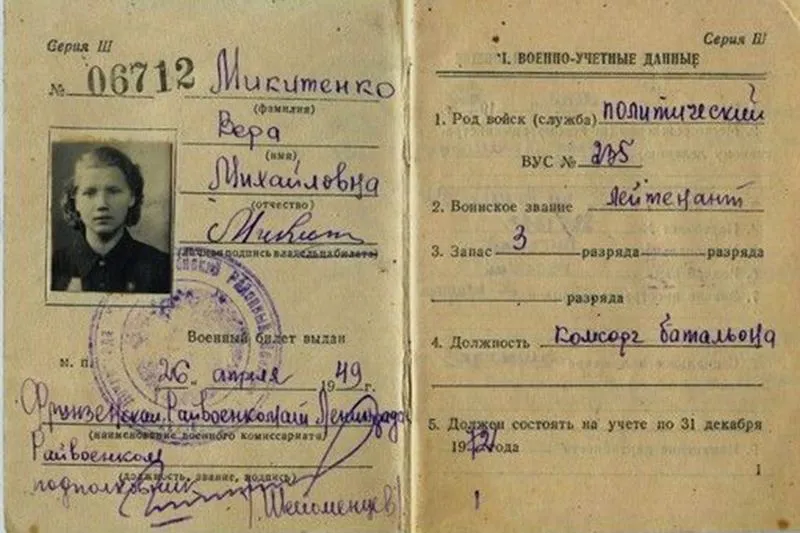 Серия Ш
№ 06712 Микитенко
(фамилия)
Вера
(имя)
Михайловна
(отчество)
(личная подпись владельца билета)
Военный билет выдан
М. П.
26 апреля 1949 г.
Фрунзенский Райвоенкомат Ленинграда
(наименование военного комиссариата)
Райвоенком
(должность, звание, подпись)
подполковник
Серия Ш
I. ВОЕННО-УЧЕТНЫЕ ДАННЫЕ
1. Род войск (служба) политический
ВУС № 235
2. Воинское звание лейтенант
3. Запас 3 разряда разряда
разряда
4. Должность Комсорг батальона
5. Должен состоять на учете по 31 декабря
1972 года
1